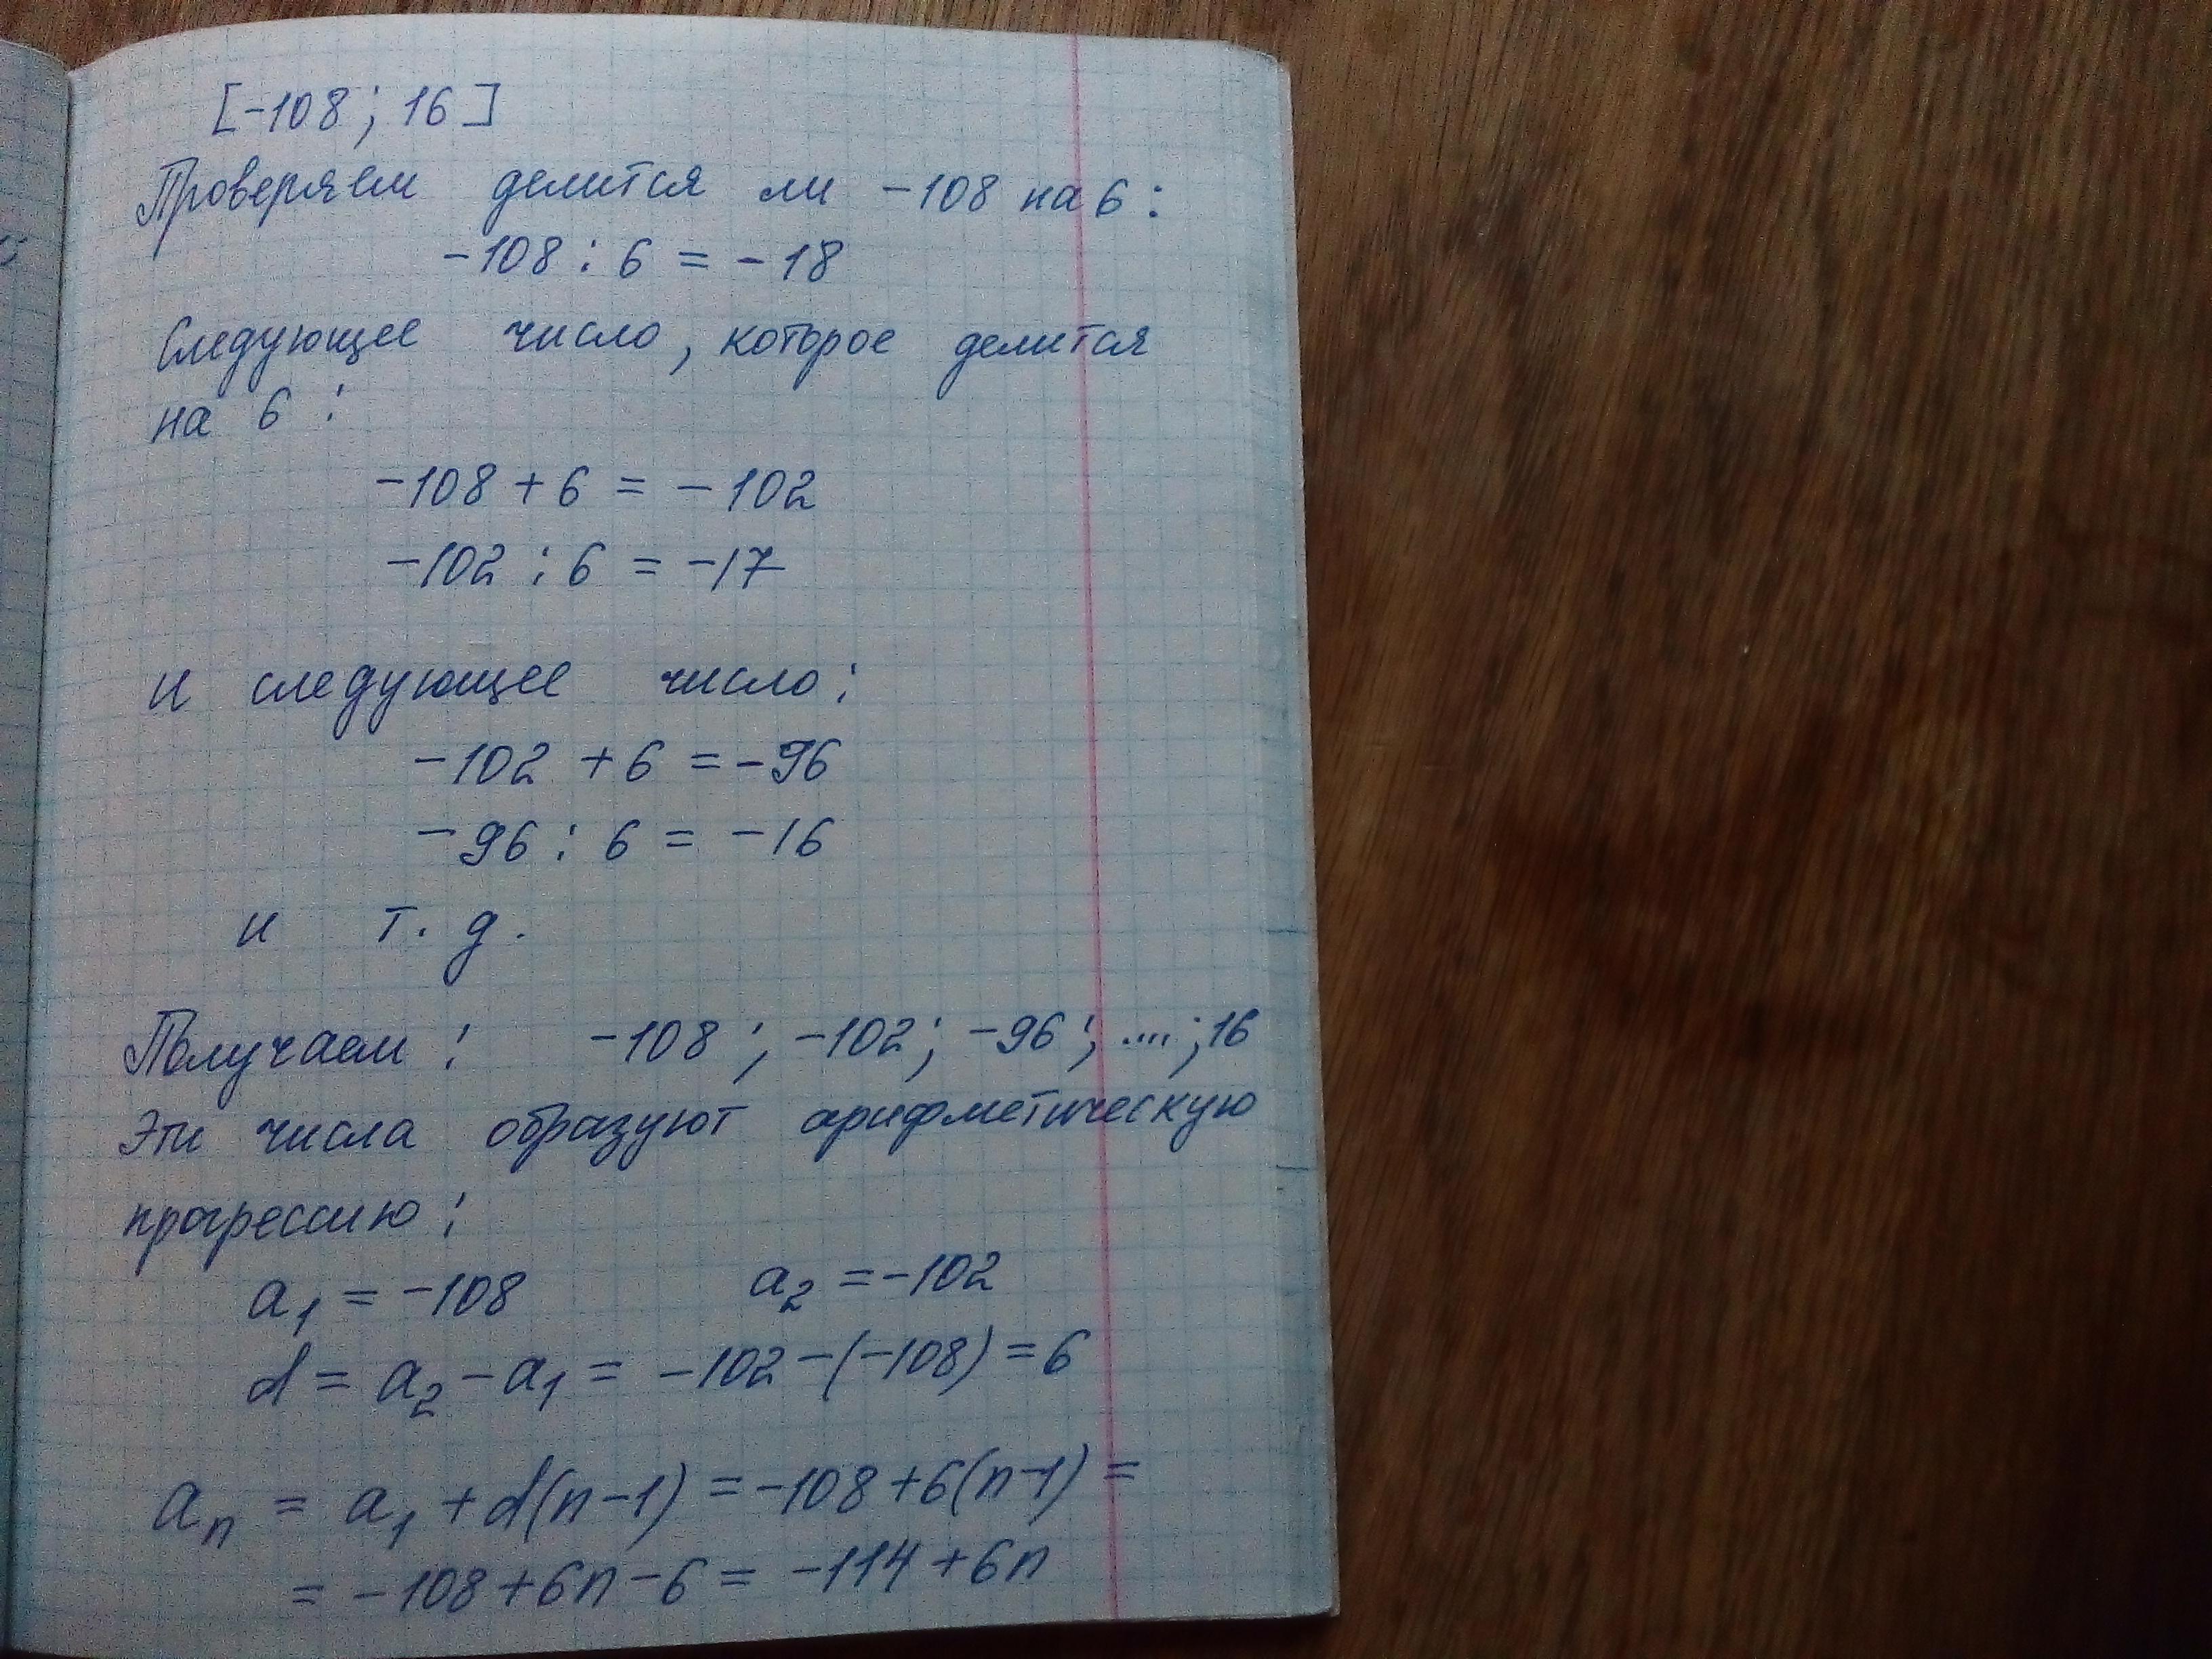 [-108; 16]
Проверяем делится ли -108 на 6:
-108 : 6 = -18
Следующее число, которое делится
на 6:
-108 + 6 = -102
-102 : 6 = -17
и следующее число:
-102 + 6 = -96
-96 : 6 = -16
и т. д.
Получаем: -108; -102; -96; ....; 16
Эти числа образуют арифметическую
прогрессию:
a₁ = -108 a₂ = -102
d = a₂ - a₁ = -102 - (-108) = 6
aₙ = a₁ + d(n-1) = -108 + 6(n-1) =
= -108 + 6n - 6 = -114 + 6n